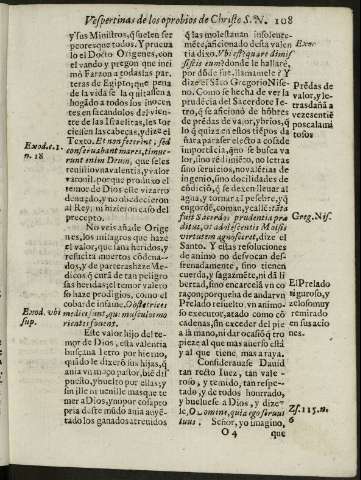 Vespertinas de los oprobios de Christo S. N. 108
y sus Ministros, q̃ suelen ser
peores que todos. Y procura
lo el Docto Origenes, con
el vando y pregon que inti
mò Faraon a todas las par,
tes de Egipto, que pena
de la vida se la quitassen a
hogãdo a todos los inocen
tes en sacandolos del vien-
tre de las Israelitas, les tor
ciessen las cabeças, y dize el
Texto. Et non fecerint, sed
conseruabant mares, timue-
runt enim Deum, que seles
tenia
valor con
temor de Dios este vizarro
denagdo, y no obedecieron
al Rey; ni hizieron caso del
precepto.
No veis añade Orige
nes, los milagros que haze
el valor, que sana heridas, y
resucita muertos cõdena-
dos, y de parteras haze Me-
dicos q̃ curã de tan peligro
sas heridas; el temor valeto
so haze prodigios, como el
cobarde infame. Obstetrices
medicæ sunt, quæ masculorum
vicates fouent.
Este valor hijo del te-
mor de Dios, esta valentia
buscaua Ietro por hierno,
quãdo le dixerõ sus hijas, q̃
auia vn moço pastor, biẽ dis
puesto, y buelto por ellas; y
sin ser
mer a Dios, y no por cosa pro
pria deste mũdo auia auyẽ-
tado los ganados atreuidos
Exod. c. 1.
n. 18
Exod. vbi
sup.
q̃ las molestauan insolente-
mẽte, aficionado desta valen
tia dixo. Vbi est quare dimi-
sistis eum? donde le hallarè,
por dõde fue. llamamele? Y
dize el Sãto Gregorio Nise-
no. Como se hecha de ver la
prudẽcia del Sacerdote Ie-
tro, q̃ se aficiona de hõbres
de prẽdas de valor, y brios, q̃
lo q̃ quizas en estos tiẽpos da
ñara para ser preferido a otro
esso le haze que le busca, va-
lor, sino rẽdimiẽto, no letras
sino ignorãcias, no valẽtias de
ingenio, sino docilidades de
cõdiciõ, q̃ se dexen lleuar al
agua, y tornar al pesebre, y q̃
engordẽ, comã, y callẽ: tãta
fuit Sacerdos prudentia præ
ditus, vt adolescentis Moisis
virtutem agnosceret, dize el
Santo. Y estas resoluciones
de animo no desvocan des-
frenadamente, sino tienen
cuerda, y sagazmẽte, ni dã li
bertad, sino encarcelã vn co
raçon; porque ha de andar vn
Prelado resuelto vn animo-
so executor, atado como cõ
cadenas, sin exceder del pie
a la mano, ni dar ocasiõ q̃ tro
piece al que mas auerso està
y al que tiene, mas a raya.
Considerauase Dauid
tan recto Iuez, tan vale-
roso, y temido, tan respe-
tado, y de todos honrado,
y bueluese a Dios, y dize-
le, O Domine, quia ego seruus
tuus. Señor, yo imagino,
O 4 que
Exor
Prẽdas de
valor, y le-
tras dañã a
vezes en tiẽ
pos calami
tosos
Greg. Nis.
El Prelado
riguroso, y
zeloso muy
remirado
en sus acio
nes.
Ps. 115. n.
6